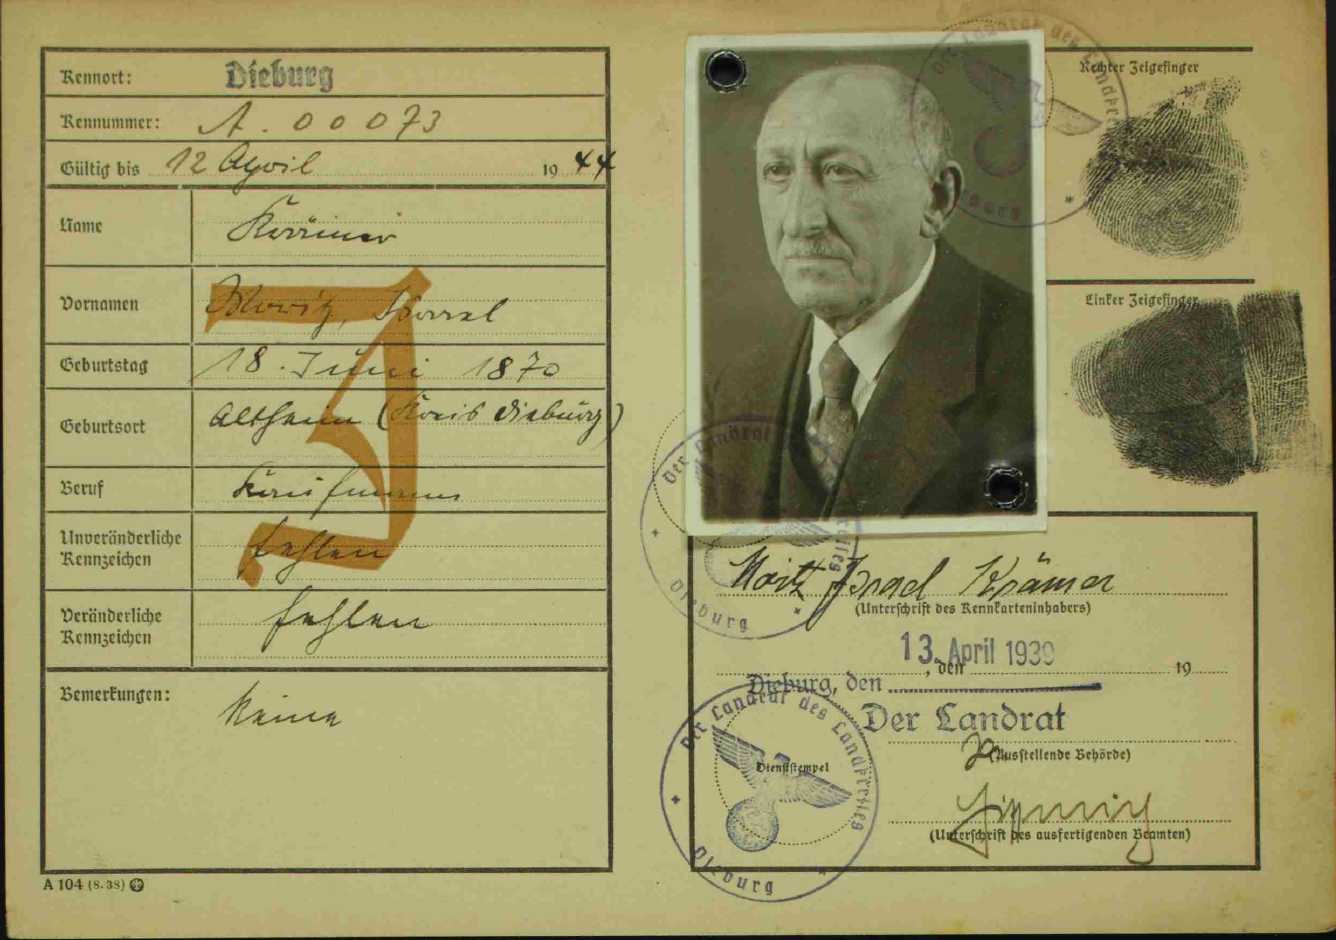 Kennort: Dieburg
Kennummer: A. 00073
Gültig bis 12 April 1944
Name Krämer
Vornamen Moritz, Israel
Geburtstag 18. Juni 1870
Geburtsort Altheim (Kreis Dieburg)
Beruf Kaufmann
Unveränderliche Kennzeichen fehlen
Veränderliche Kennzeichen fehlen
Bemerkungen: Keine
J
A 104 (8.38)
Rechter Zeigefinger
Linker Zeigefinger
Der Landrat des Landkreises
Dieburg
Der Landrat des Landkreises
Dieburg
Moritz Israel Krämer
(Unterschrift des Kennkarteninhabers)
13. April 1939
, den 19
Dieburg, den
Der Landrat
(Ausstellende Behörde)
Der Landrat des Landkreises
Dienststempel
Dieburg
(Unterschrift des ausfertigenden Beamten)